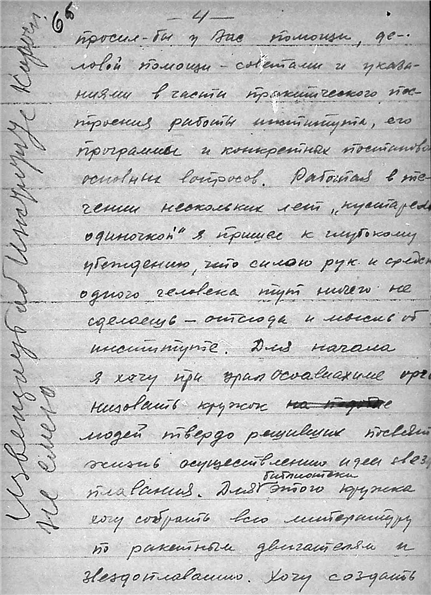 65
— 4 —
просил-бы у Вас помощи, де-
ловой помощи – советами и указа-
ниями в части практического пос-
троения работы института, его
программы и конкретных постановок
основных вопросов. Работая в те-
чении нескольких лет „кустарем
одиночкой“ я пришел к глубокому
убеждению, что силою рук и средств
одного человека тут ничего не
сделаешь – отсюда и мысль об
институте. Для начала
я хочу при Осоавиахиме орга
низовать кружок
людей твердо решивших посвятить
жизнь осуществлению идеи звездо
плавания. Для библиотеки этого кружка
хочу собрать всю литературу
по ракетным двигателям и
звездоплаванию. Хочу создать
не смею